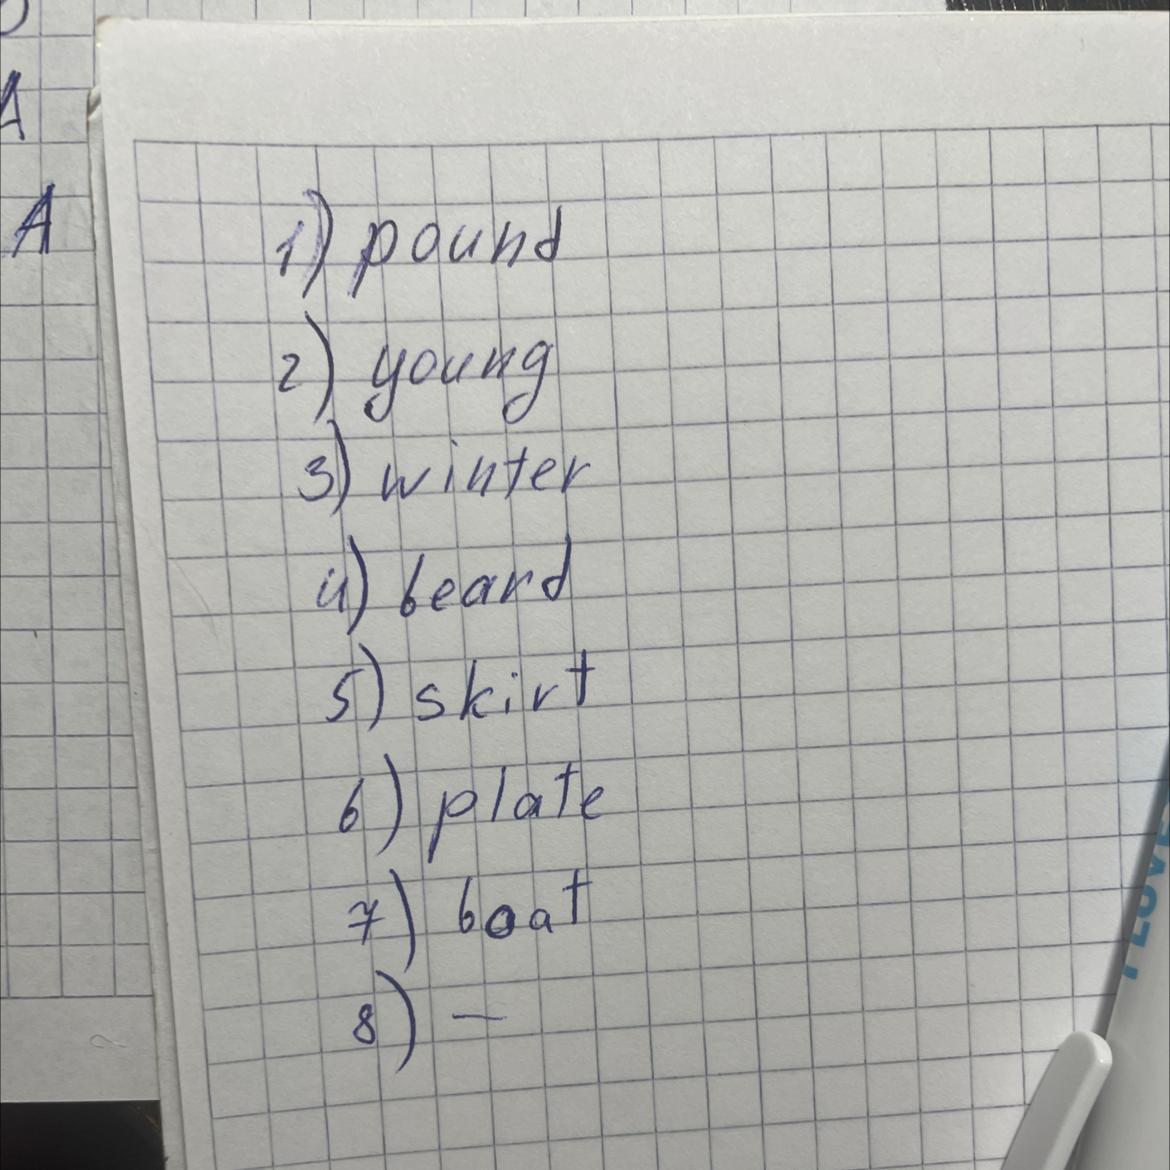 A
A
1) pound
2) young
3) winter
4) beard
5) skirt
6) plate
7) boat
8) —
I LOVE